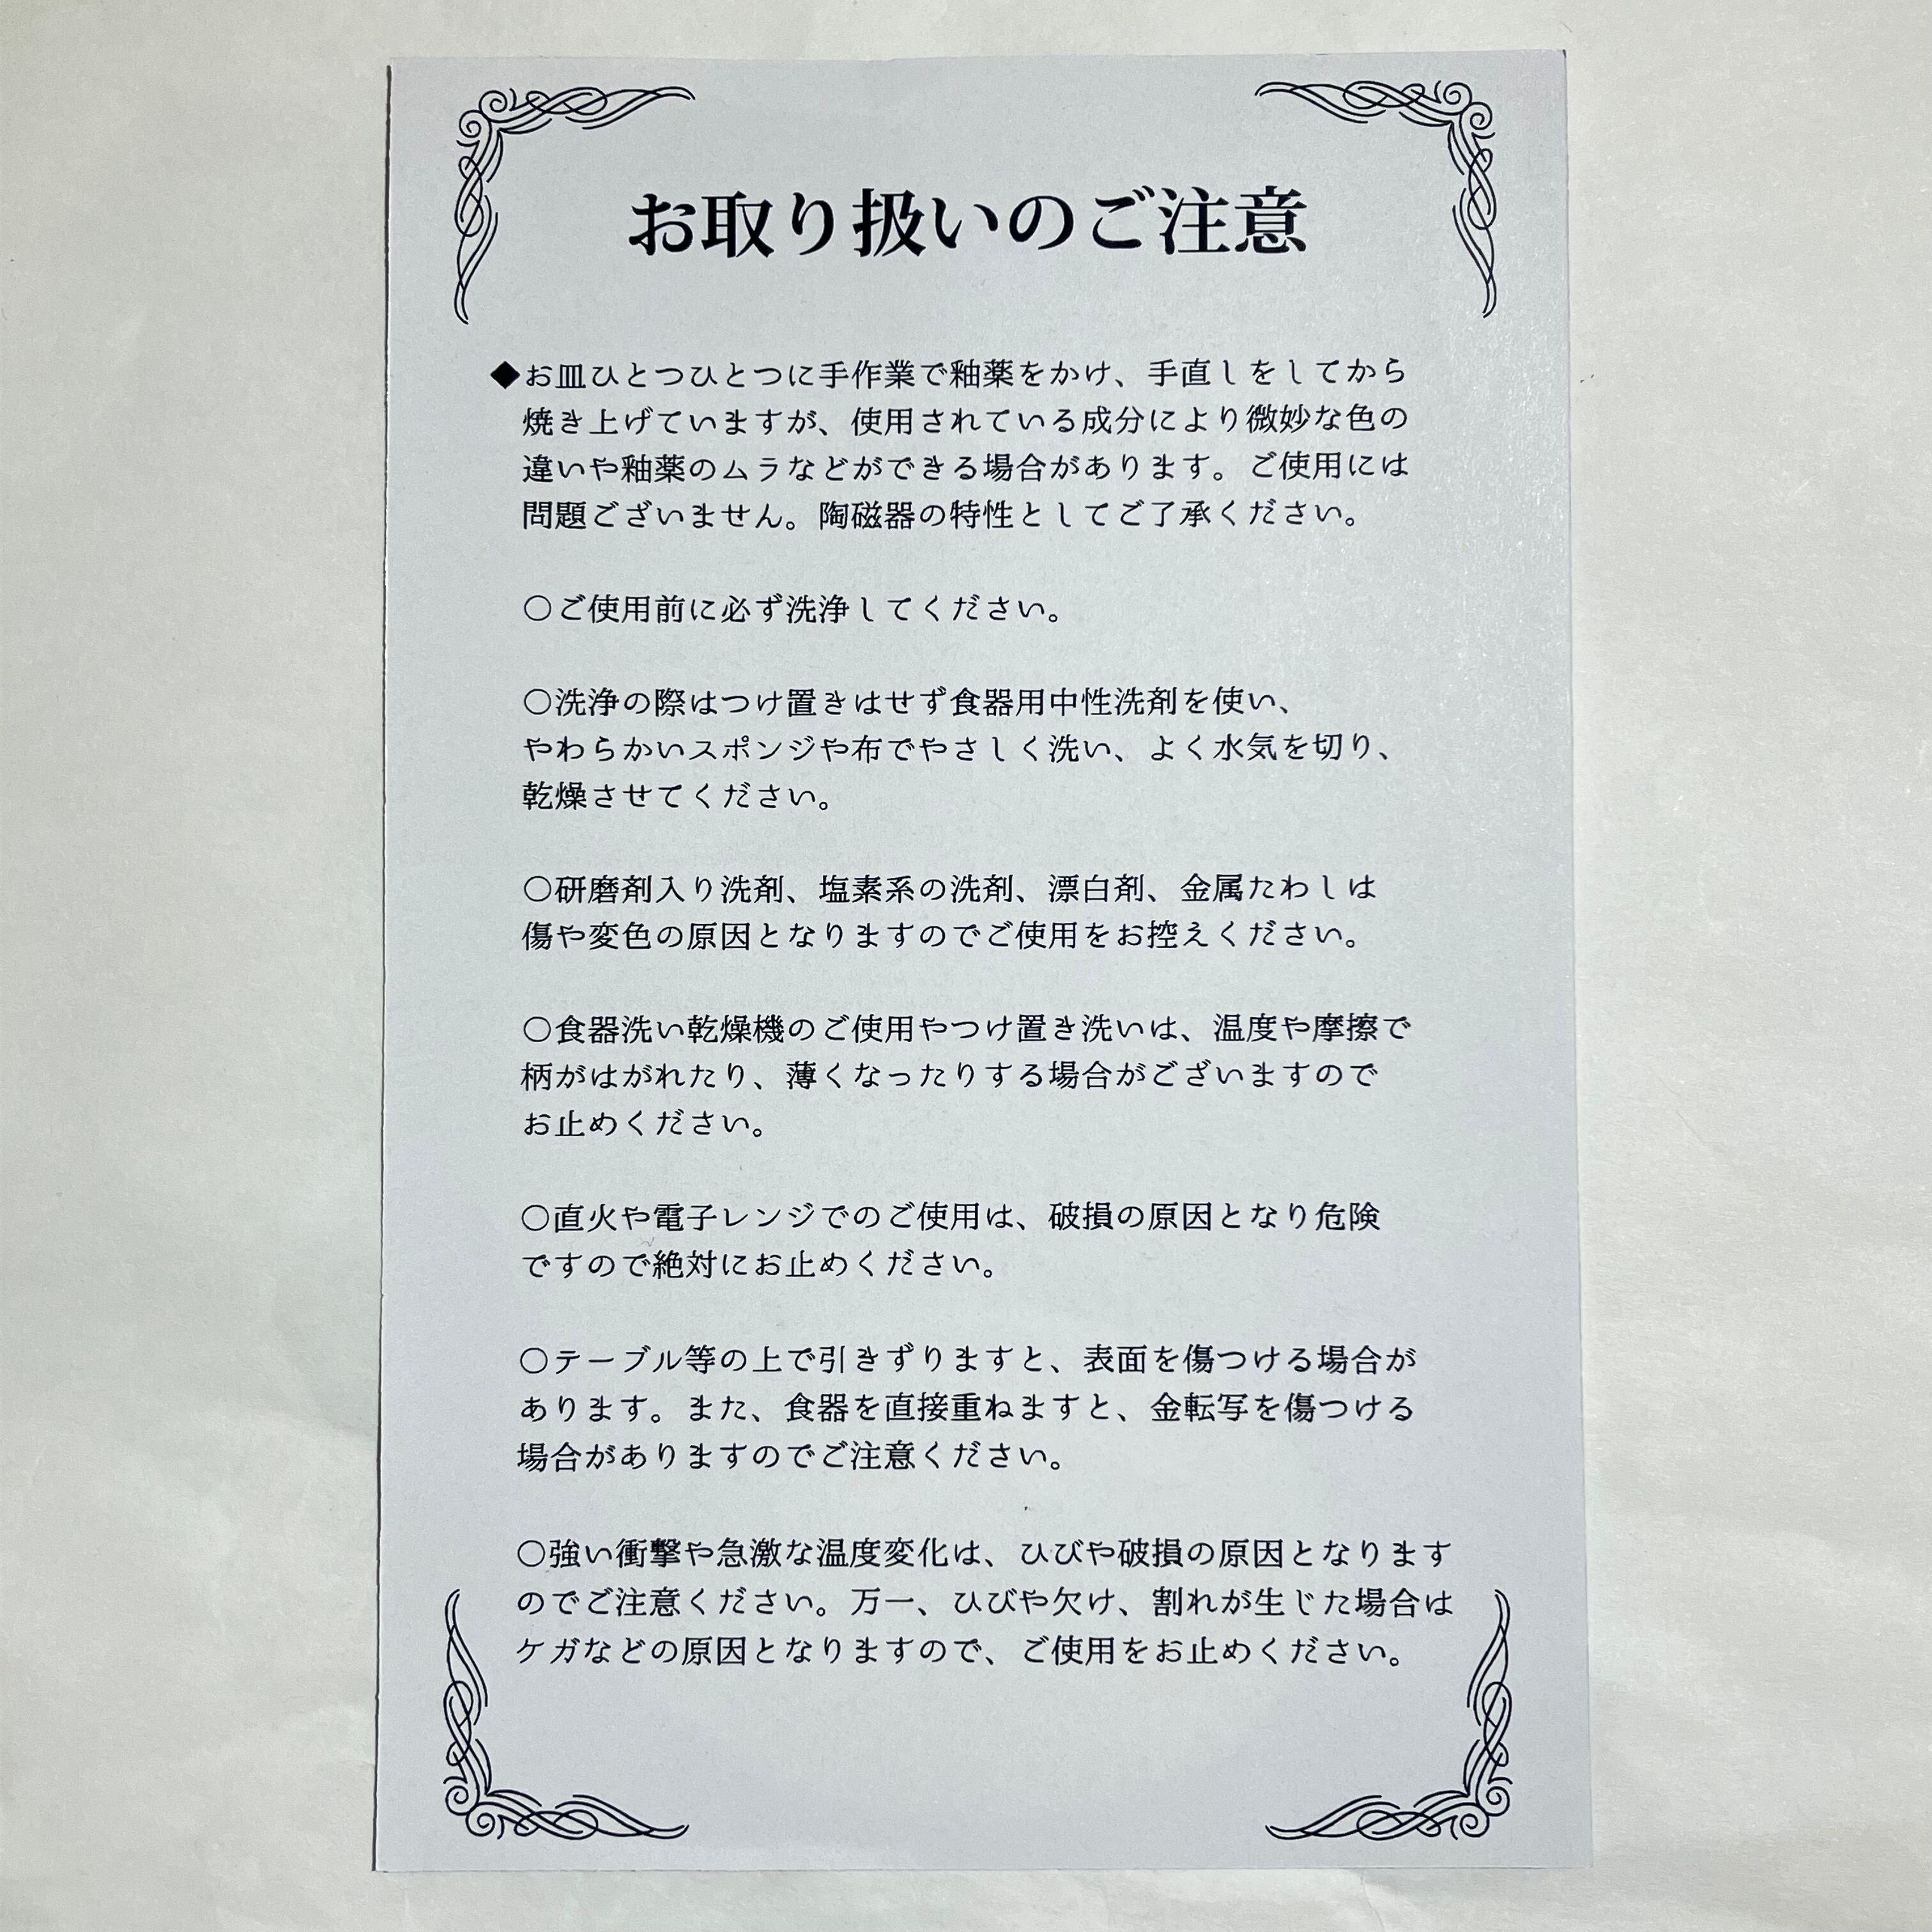 お取り扱いのご注意
◆お皿ひとつひとつに手作業で釉薬をかけ、手直しをしてから
焼き上げていますが、使用されている成分により微妙な色の
違いや釉薬のムラなどができる場合があります。ご使用には
問題ございません。陶磁器の特性としてご了承ください。
○ご使用前に必ず洗浄してください。
○洗浄の際はつけ置きはせず食器用中性洗剤を使い、
やわらかいスポンジや布でやさしく洗い、よく水気を切り、
乾燥させてください。
○研磨剤入り洗剤、塩素系の洗剤、漂白剤、金属たわしは
傷や変色の原因となりますのでご使用をお控えください。
○食器洗い乾燥機のご使用やつけ置き洗いは、温度や摩擦で
柄がはがれたり、薄くなったりする場合がございますので
お止めください。
○直火や電子レンジでのご使用は、破損の原因となり危険
ですので絶対にお止めください。
○テーブル等の上で引きずりますと、表面を傷つける場合が
あります。また、食器を直接重ねますと、金転写を傷つける
場合がありますのでご注意ください。
○強い衝撃や急激な温度変化は、ひびや破損の原因となります
のでご注意ください。万一、ひびや欠け、割れが生じた場合は
ケガなどの原因となりますので、ご使用をお止めください。